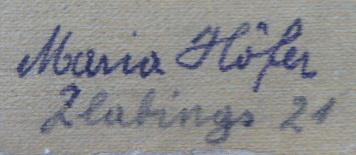 Maria Höfer
Zlabings 21